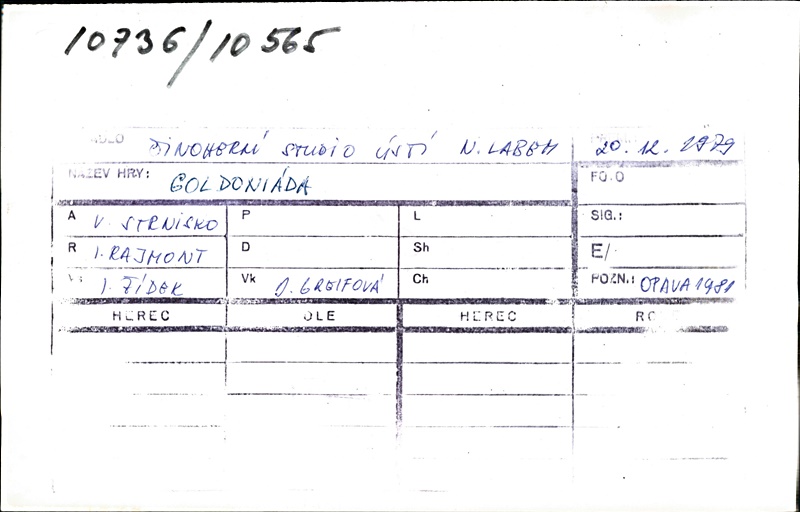 10736/10565
ČINOHERNÍ STUDIO ÚSTÍ N. LABEM 20. 12. 1979
NÁZEV HRY: GOLDONIÁDA FOTO
A V. STRNISKO P L SIG.:
R I. RAJMONT D Sh E/
I. ŽÍDEK Vk J. GREIFOVÁ Ch POZN.: OPAVA 1981
HEREC OLE HEREC RO